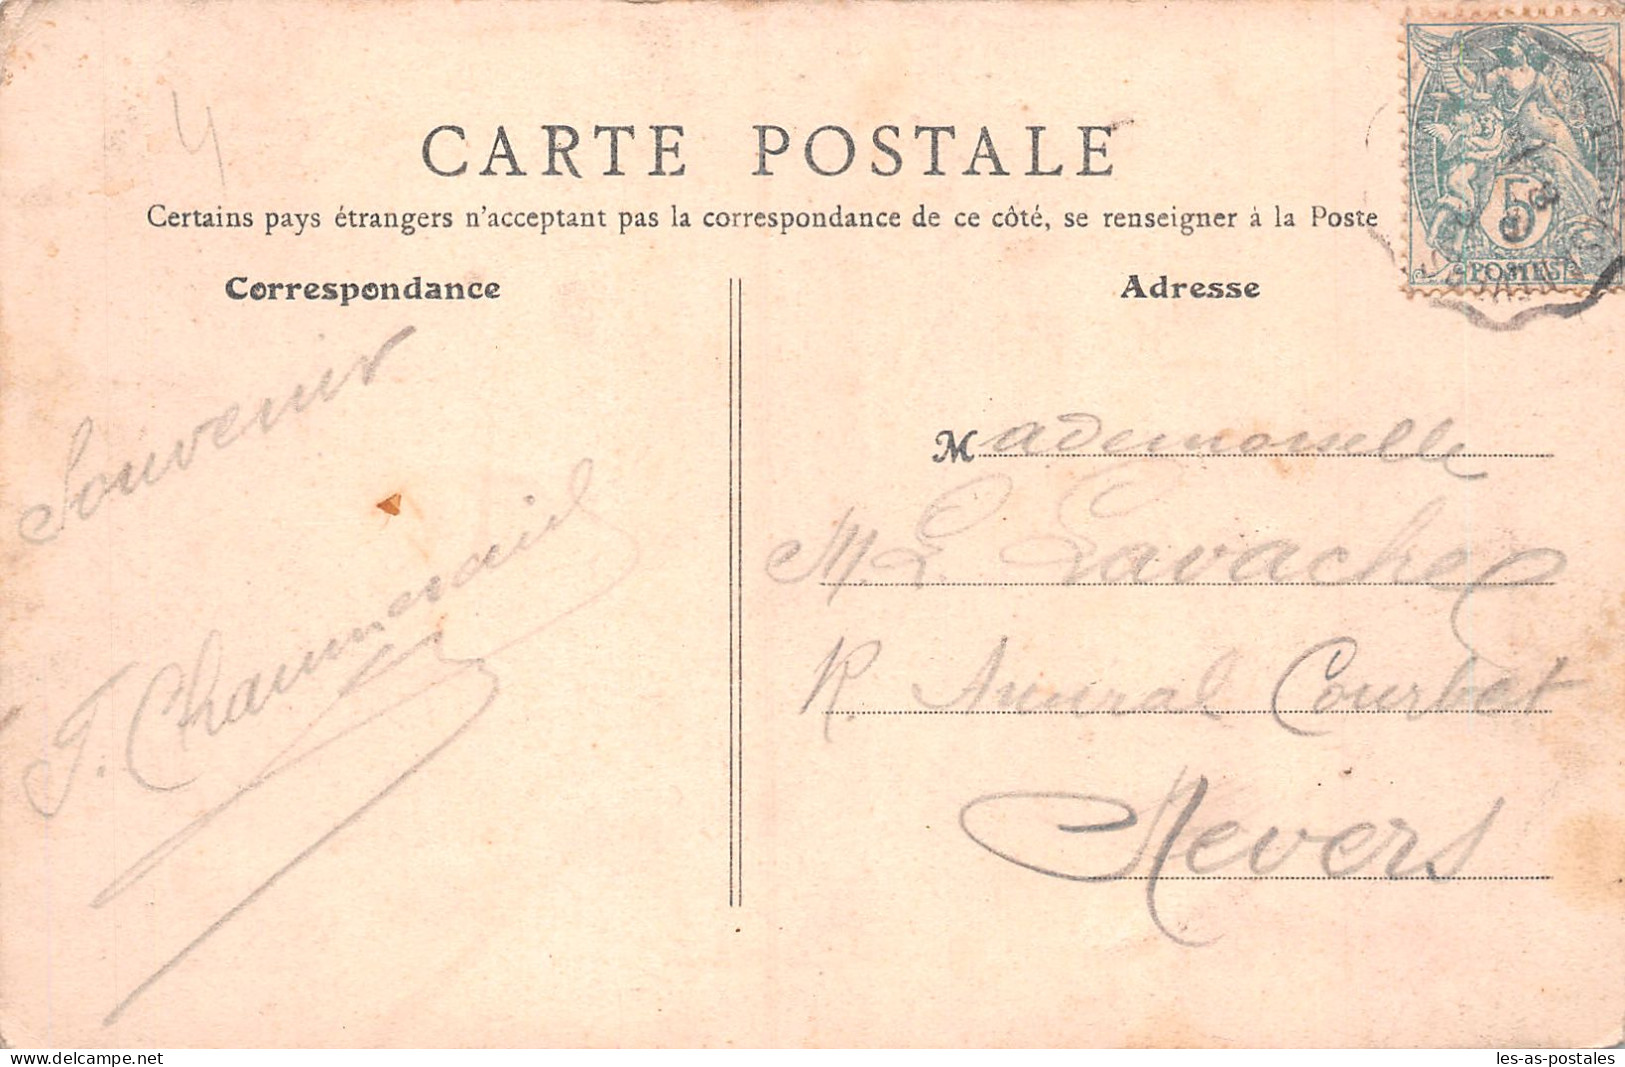 4
CARTE POSTALE
Certains pays étrangers n'acceptant pas la correspondance de ce côté, se renseigner à la Poste
Correspondance
Souvenir
Adresse
Mademoiselle
M. L. Lavache
R. Amiral Courbet
Nevers
5
POSTES
www.delcampe.net
les-as-postales